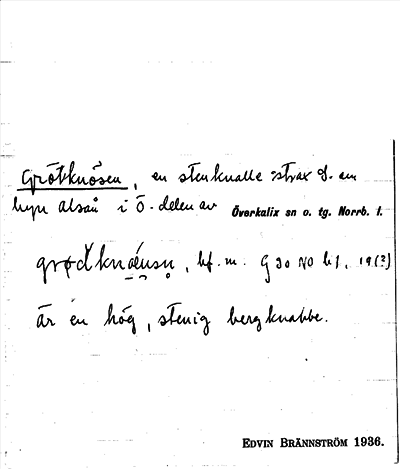 Grötknösen, en stenknalle strax S. om
byn Alsån i Ö. delen av Överkalix sn o. tg. Norrb. l.
bf. m. G 30 NO bf, 19(?)
är en hög, stenig bergknabbe.
EDVIN BRÄNNSTRÖM 1936.